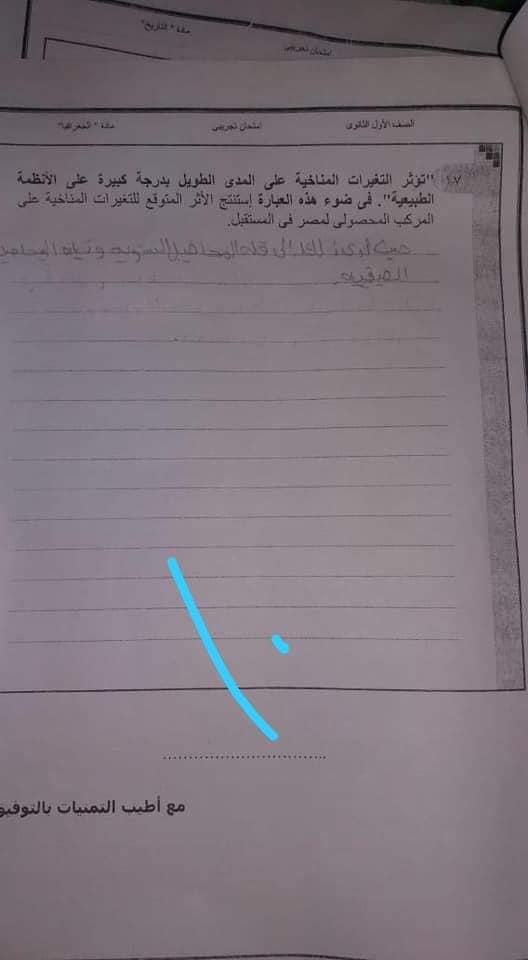 مادة " التاريخ"
امتحان تجريبى
الصف الأول الثانوى
امتحان تجريبى
مادة " الجغرافيا"
٤٧ "تؤثر التغيرات المناخية على المدى الطويل بدرجة كبيرة على الأنظمة
الطبيعية". فى ضوء هذه العبارة إستنتج الأثر المتوقع للتغيرات المناخية على
المركب المحصولى لمصر فى المستقبل.
حيث قلة المحاصيل الشتويه المحاصيل
الصيفيه
مع أطيب التمنيات بالتوفيق